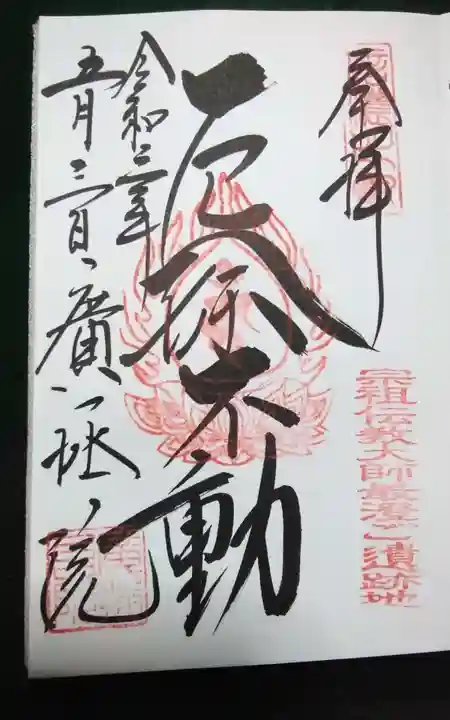 奉拝
宗祖伝教大師最澄ご遺跡地
厄除不動
令和三年
五月三日 廣拯院